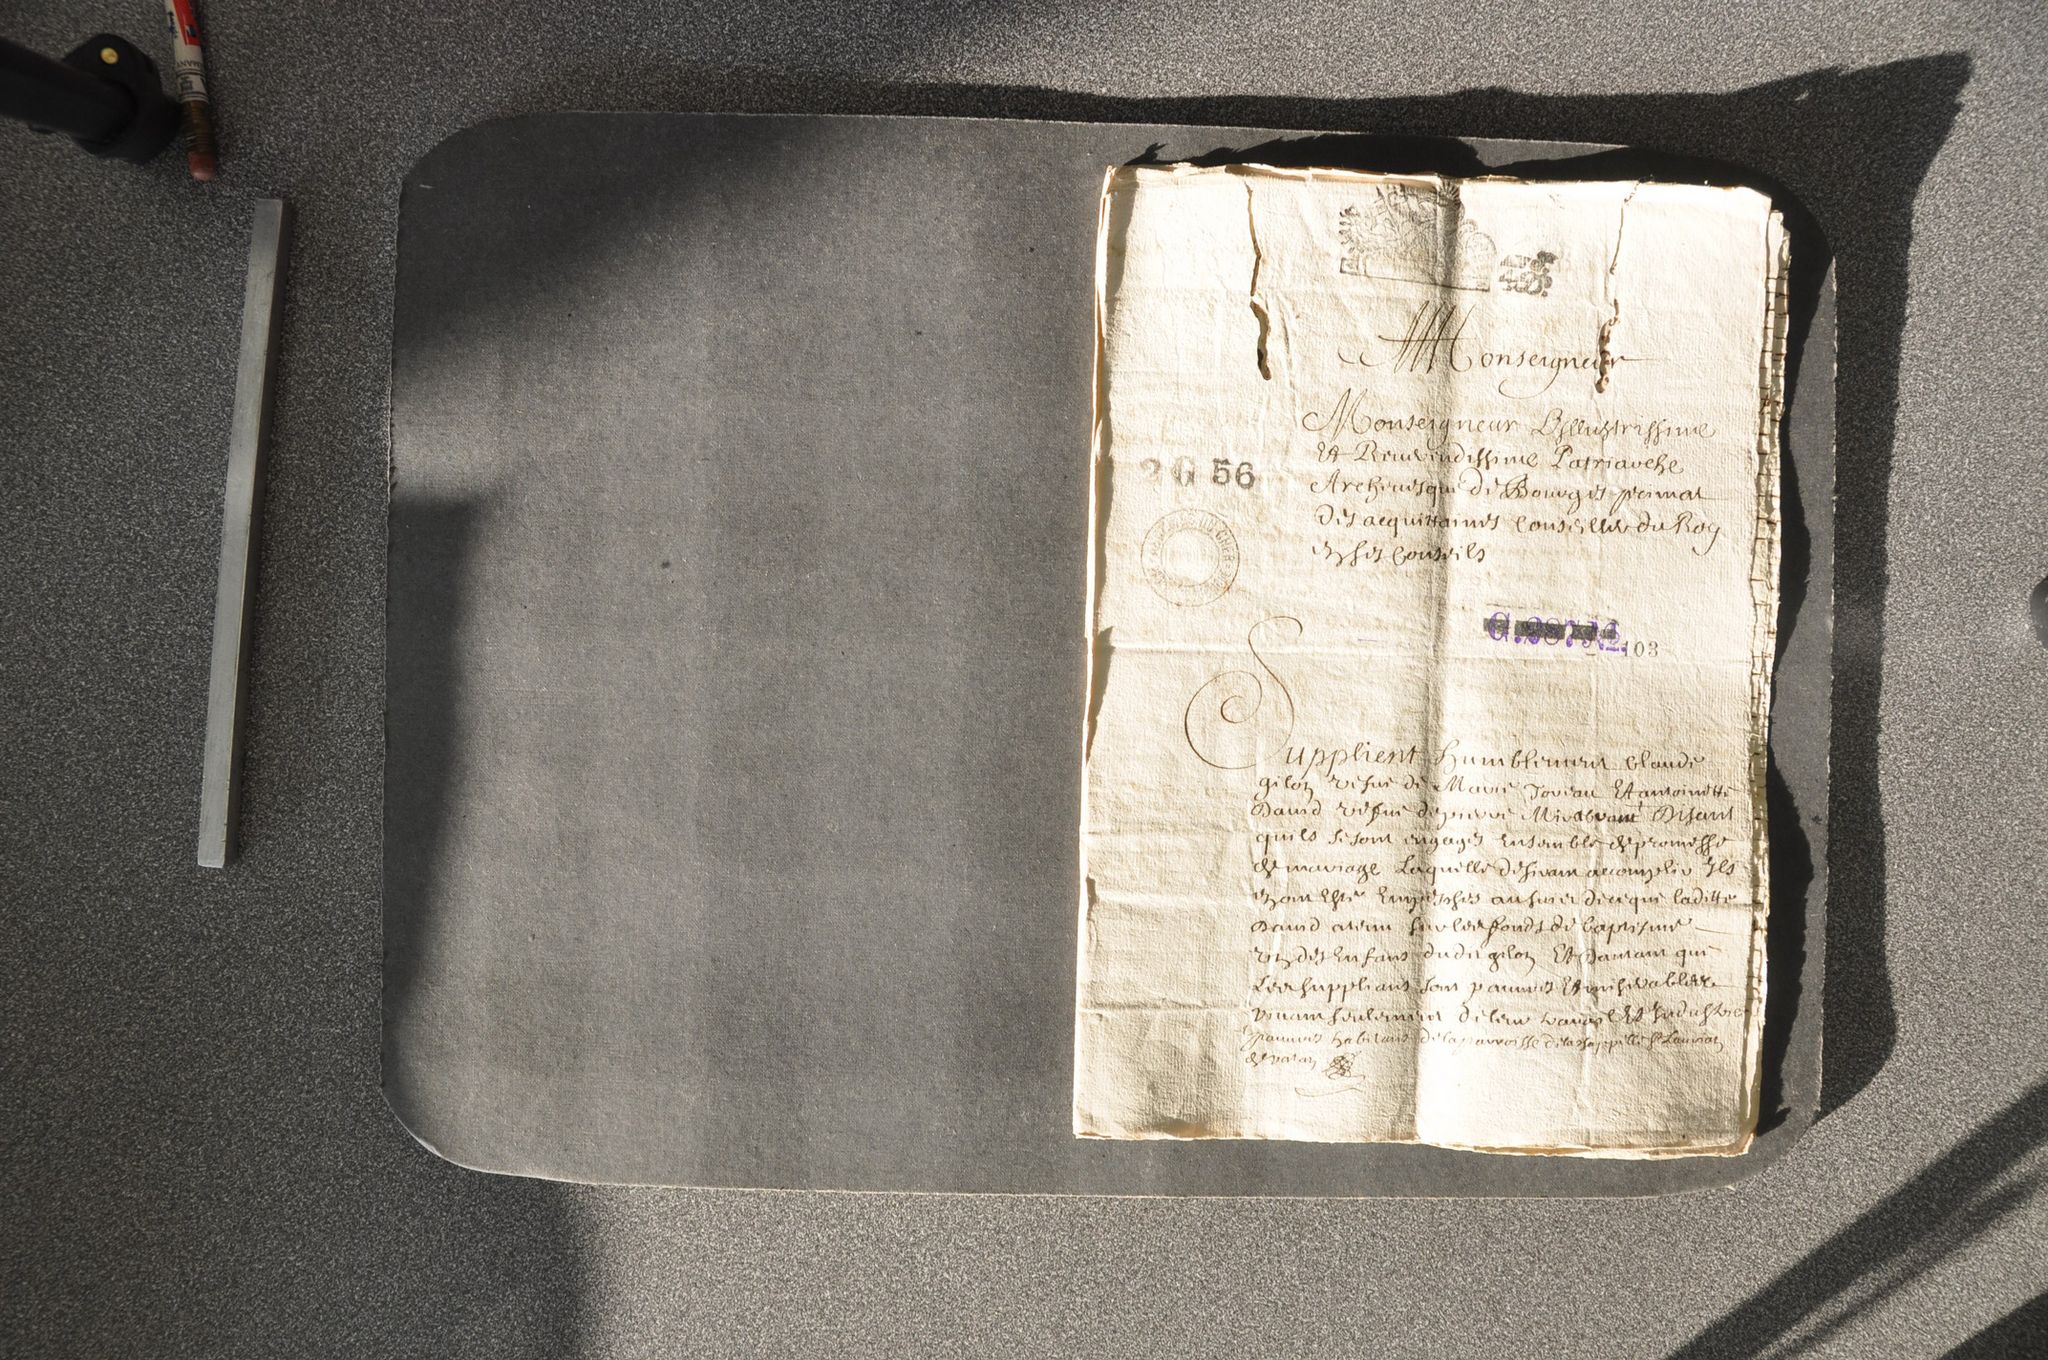 Monseigneur
Monseigneur Illustrissime
Et Reverendissime Patriarche
Archevesque de Bourges primat
des acquittaines Conseiller du Roy
en ses Conseils
2 G 56
103
Supplient humblement Claude
gilon vefue de Marie Et antoinette
David vefue de pierre disant
quils se sont engagés Ensemble de promesse
de mariage Laquelle desirant accomplir Ils
En ont Esté Empeschés au suiet de ce que laditte
David a tenu sur les fonds de baptisme
un des Enfans dudit gilon Et dautant que
Les suppliants sont pauvres Et miserables
vivant seulement de leur travail Et Industrie
pauvres habitans de la parroisse de la chappelle St Laurian
de vatan